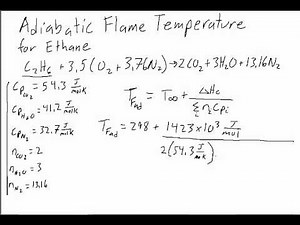 Adiabatic Flame Temperature
for Ethane
C₂H₆ + 3,5(O₂ + 3,76N₂) → 2CO₂ + 3H₂O + 13,16N₂
Cp_CO₂ = 54.3 J/molK
Cp_H₂O = 41.2 J/molK
Cp_N₂ = 32.7 J/molK
n_CO₂ = 2
n_H₂O = 3
n_N₂ = 13.16
T_Fad = T∞ + ΔHc / Σ nᵢCpᵢ
T_Fad = 298 + 1423×10³ J/mol / 2(54.3 J/molK)